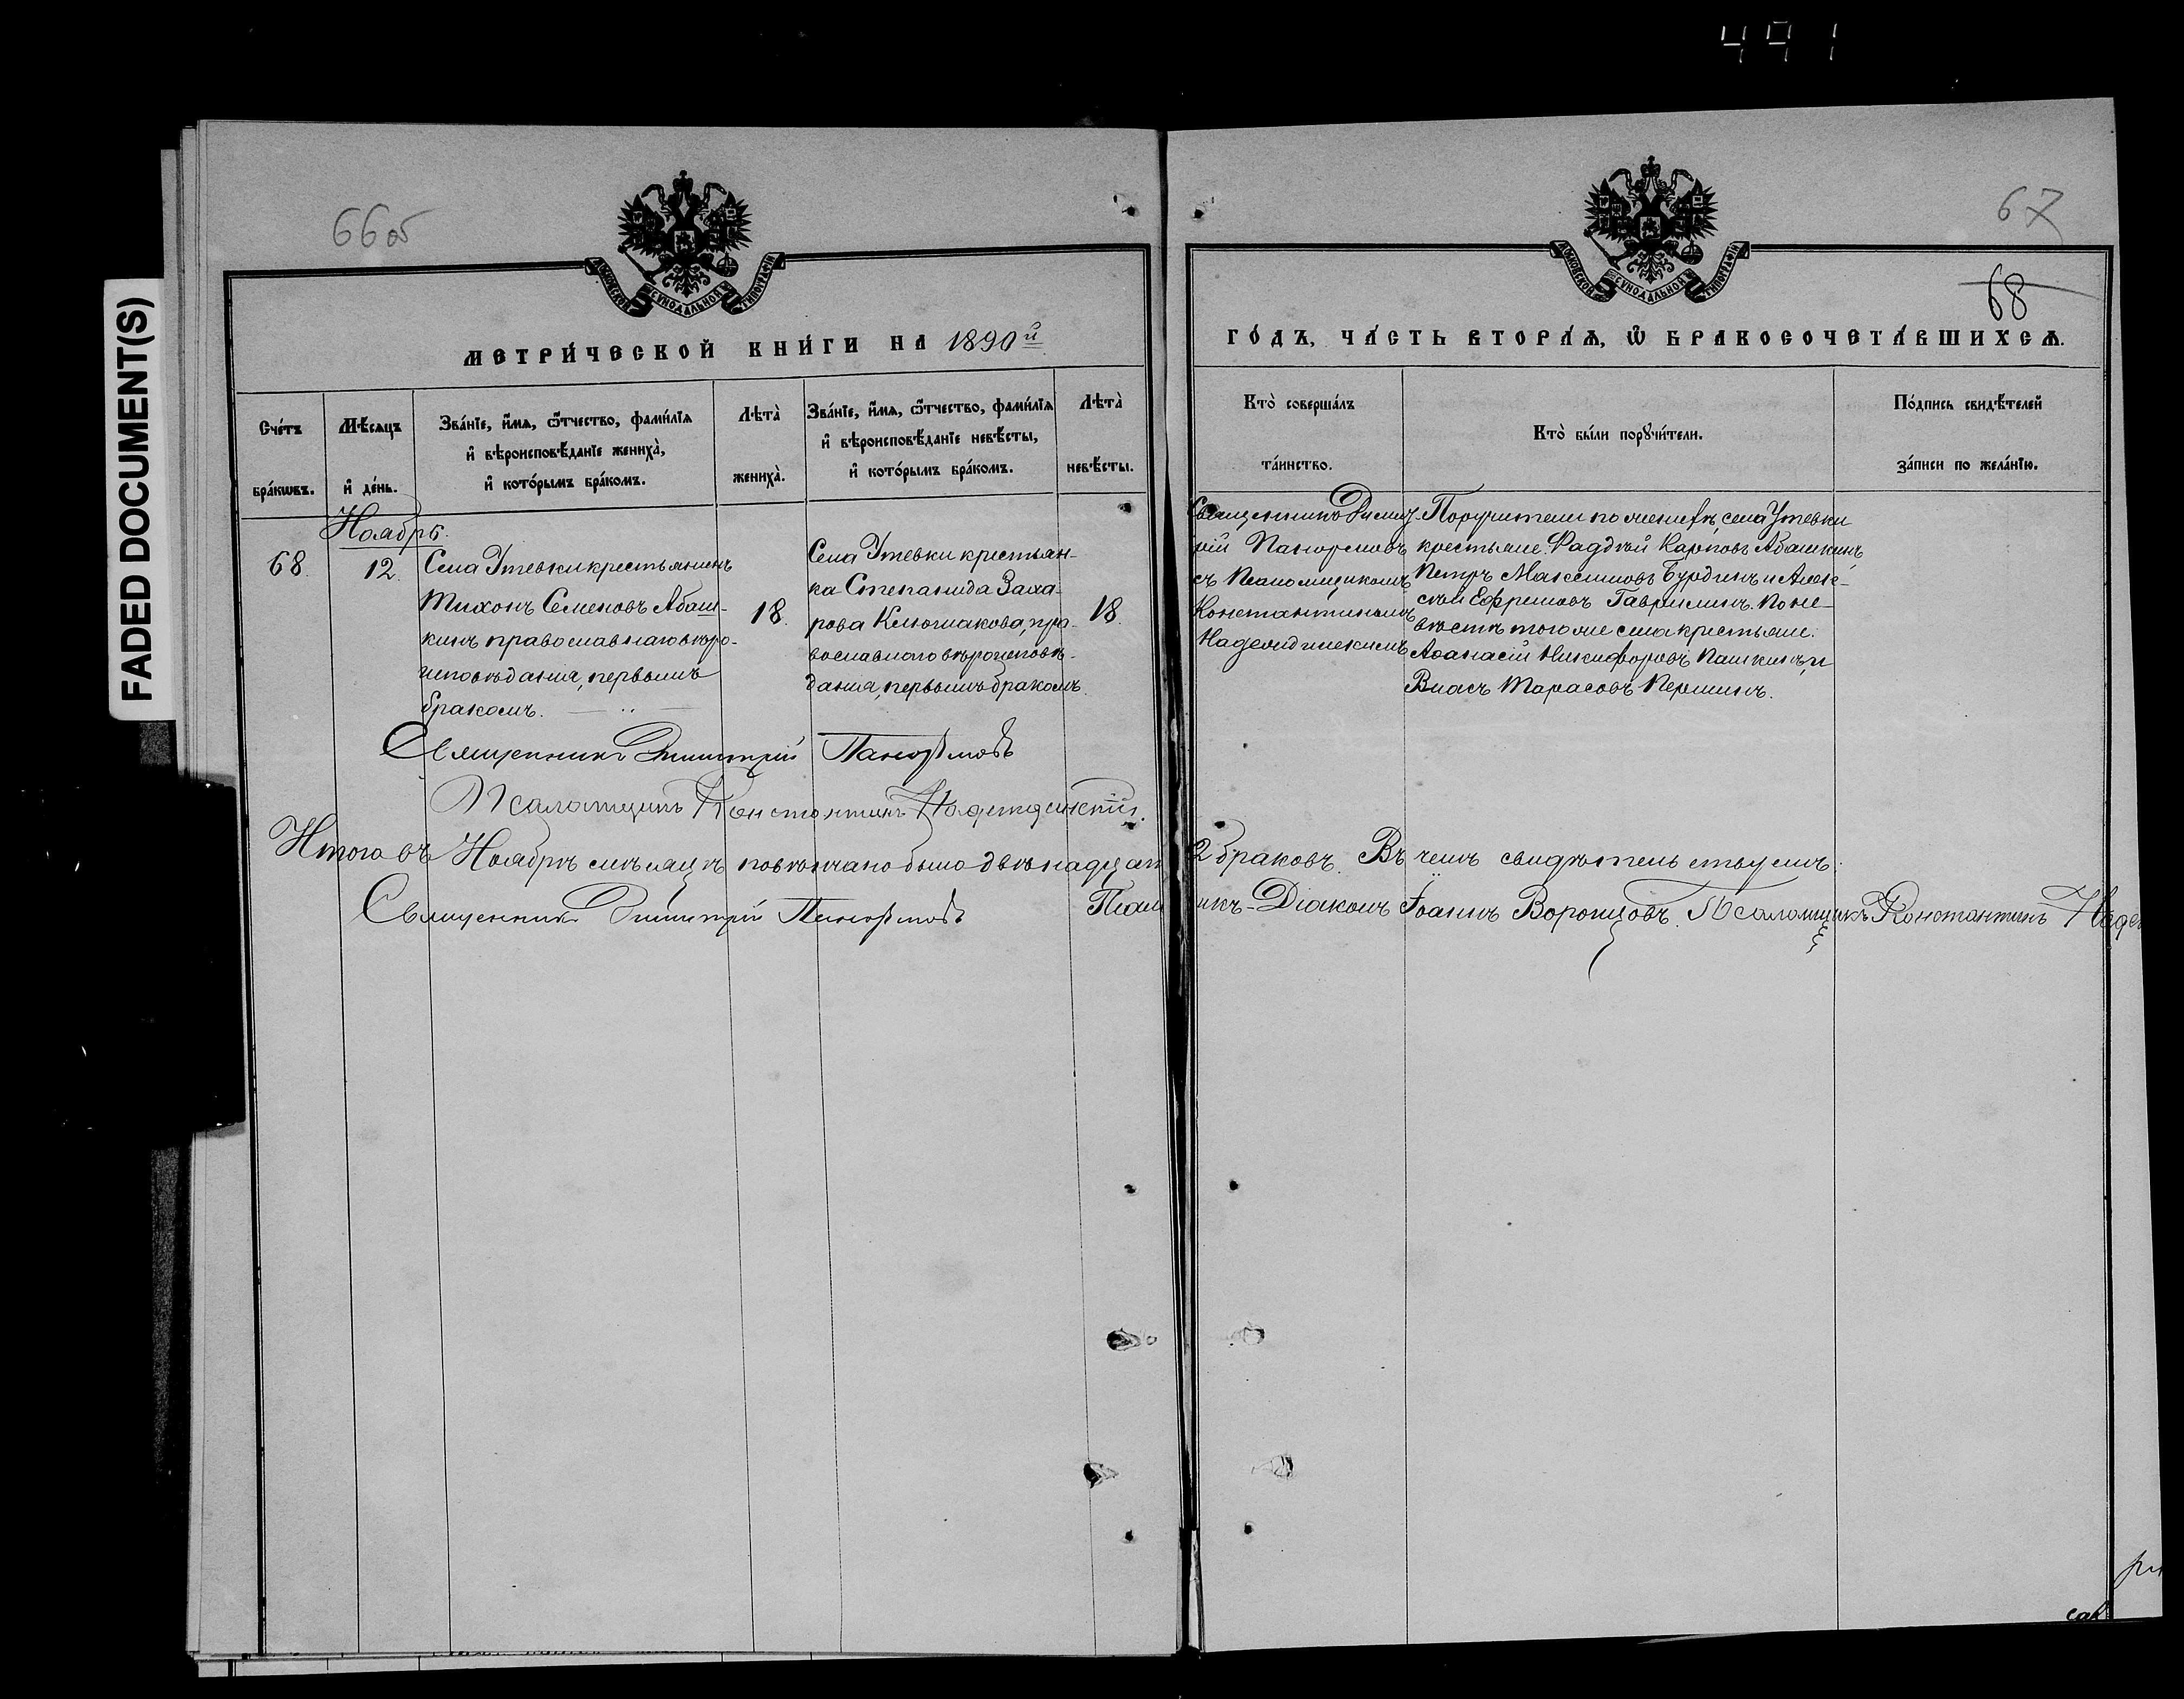 491
FADED DOCUMENT(S)
66об
67
68
МОСКОВСКОЙ СѴНОДАЛЬНОЙ ТИПОГРАФІИ
МОСКОВСКОЙ СѴНОДАЛЬНОЙ ТИПОГРАФІИ
МЕТРИ́ЧЕСКОЙ КНИ́ГИ НА 1890й
ГО́ДЪ, ЧА́СТЬ ВТОРА́Ѧ, Ѽ БРАКОСОЧЕТА́ВШИХСѦ.
Сче́тъ
бра́кѡвъ.
Мѣ́сѧцъ
и҆ де́нь.
Зва́нїе, и҆́мѧ, ѻ҆́тчество, фами́лїѧ
и҆ вѣроисповѣ́данїе жениха̀,
и҆ кото́рымъ бра́комъ.
Лѣта̀
жениха̀.
Зва́нїе, и҆́мѧ, ѻ҆́тчество, фами́лїѧ
и҆ вѣроисповѣ́данїе невѣ́сты,
и҆ кото́рымъ бра́комъ.
Лѣта̀
невѣ́сты.
Кто̀ соверша́лъ
та́инство.
Кто̀ бы́ли порꙋчи́тели.
По́дпись свидѣ́телей
за́писи по жела́нїю.
Ноябрь.
68.
12.
Села Утевки крестьянинъ
Тихонъ Семеновъ Абаш-
кинъ православнаго вѣро-
исповѣданія, первымъ
бракомъ.
18.
Села Утевки крестьян-
ка Степанида Заха-
рова Клюшакова, пра-
вославнаго вѣроисповѣ-
данія, первымъ бракомъ.
18.
Священникъ Димит-
рій Панормовъ
съ Псаломщикомъ
Константиномъ
Надеждинскимъ
Поручители по женихѣ, села Утевки
крестьяне: Фаддѣй Карповъ Абашкинъ,
Петръ Максимовъ Бурдинъ и Алек-
сѣй Ефремовъ Гаврилинъ. По не-
вѣстѣ того же села крестьяне:
Аѳанасій Никифоровъ Пашкинъ, и
Власъ Тарасовъ Першинъ.
Священникъ Димитрій Панормовъ
Псаломщикъ Константинъ Надеждинскій.
Итого въ Ноябрѣ мѣсяцѣ повѣнчано было двѣнадцать 12 браковъ. Въ чемъ свидѣтельствуемъ:
Священникъ Димитрій Панормовъ Псаломщикъ-Діаконъ Іоаннъ Воронцовъ. Псаломщикъ Константинъ Надеж